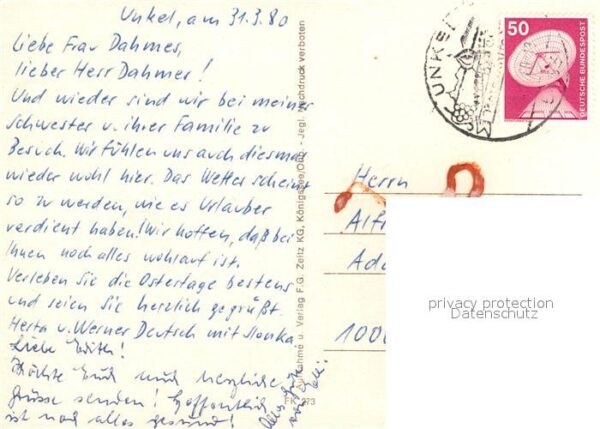 Unkel, am 31.3.80
Liebe Frau Dahmes,
lieber Herr Dahmer!
Und wieder sind wir bei meiner
Schwester u. ihrer Familie zu
Besuch. Wir fühlen uns auch diesmal
wieder wohl hier. Das Wetter scheint
so zu werden, wie es Urlauber
verdient haben! Wir hoffen, daß bei
Ihnen noch alles wohlauf ist.
Verleben Sie die Ostertage bestens
und seien Sie herzlich gegrüßt.
Herta u. Werner Deutsch mit
Liebe Edith!
Möchte Euch und herzliche
Grüsse senden! Hoffentlich
ist noch alles gesund!
Alles Gute
Aufnahme u. Verlag F.G. Zeitz KG, Königssee/Obb. - Jegl. Nachdruck verboten
FK 273
UNKEL
50
DEUTSCHE BUNDESPOST
Herrn
Alf
Ad
1000
privacy protection
Datenschutz